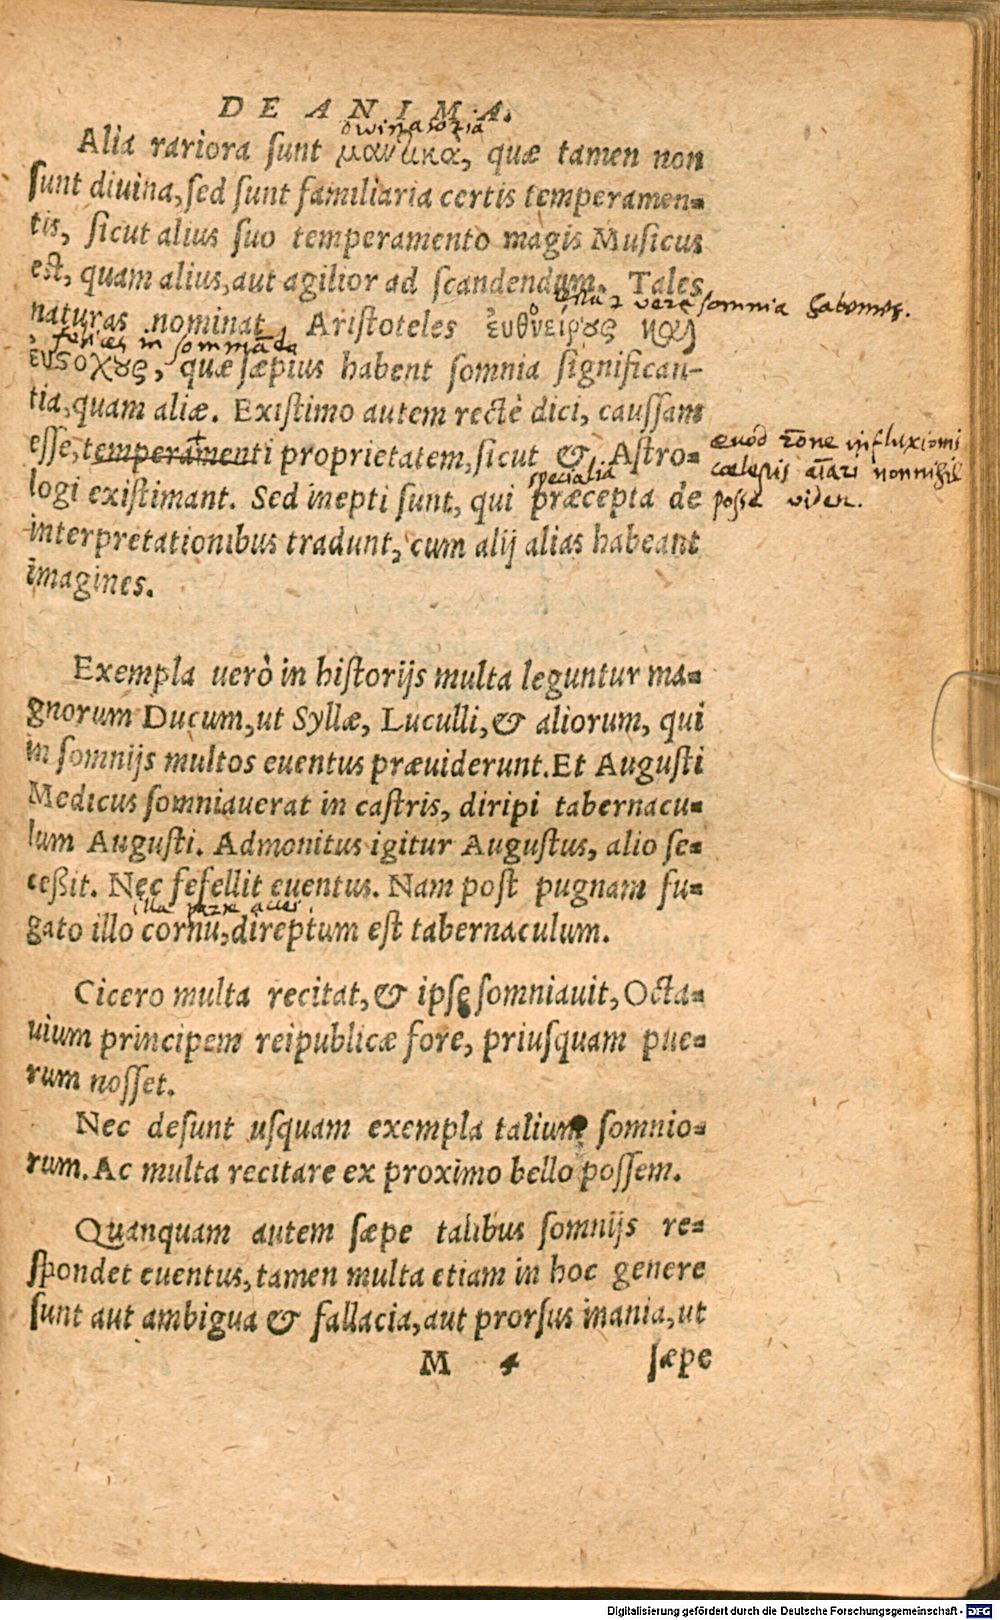 DE ANIMA.
Alia rariora ſunt μαντικα, quæ tamen non
ſunt diuina, ſed ſunt familiaria certis temperamen⸗
tis, ſicut alius ſuo temperamento magis Muſicus
eſt, quam alius, aut agilior ad ſcandendum. Tales
vera somnia habentes.
naturas nominat Ariſtoteles ἐυθονείρους καὶ
felices in
ἐυστόχους, quæ ſæpius habent ſomnia ſignifican⸗
tia, quam aliæ. Exiſtimo autem rectè dici, cauſſam
eſſe, temperamenti proprietatem, ſicut & Aſtro⸗
specialia
logi exiſtimant. Sed inepti ſunt, qui præcepta de
interpretationibus tradunt, cum alij alias habeant
imagines.
influxioni
cœlesti nonnihil
posse
Exempla uerò in hiſtorijs multa leguntur ma⸗
gnorum Ducum, ut Syllæ, Luculli, & aliorum, qui
in ſomnijs multos euentus præuiderunt. Et Auguſti
Medicus ſomniauerat in caſtris, diripi tabernacu⸗
lum Auguſti. Admonitus igitur Auguſtus, alio ſe⸗
ceßit. Nec fefellit euentus. Nam poſt pugnam fu⸗
illa parte
gato illo cornu, direptum eſt tabernaculum.
Cicero multa recitat, & ipſe ſomniauit, Octa⸗
uium principem reipublicæ fore, priuſquam pue⸗
rum noſſet.
Nec deſunt uſquam exempla talium ſomnio⸗
rum. Ac multa recitare ex proximo bello poſſem.
Quanquam autem ſæpe talibus ſomnijs re⸗
ſpondet euentus, tamen multa etiam in hoc genere
ſunt aut ambigua & fallacia, aut prorſus inania, ut
M 4 ſæpe
Digitalisierung gefördert durch die Deutsche Forschungsgemeinschaft - DFG